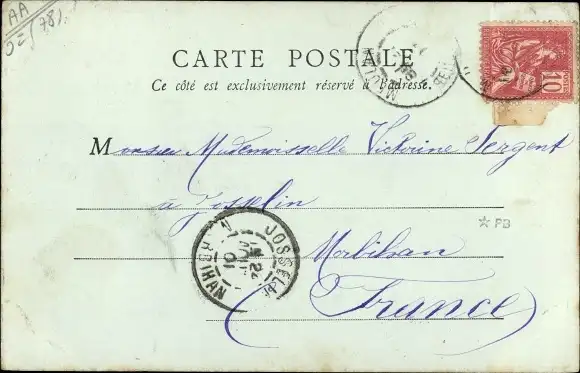 AA
CARTE POSTALE
Ce côté est exclusivement réservé à l'adresse.
10
POSTES
M Mademoiselle Victorine Sergent
à Josselin
PB
Morbihan
(France)
JOSSELIN
22
01
MORBIHAN